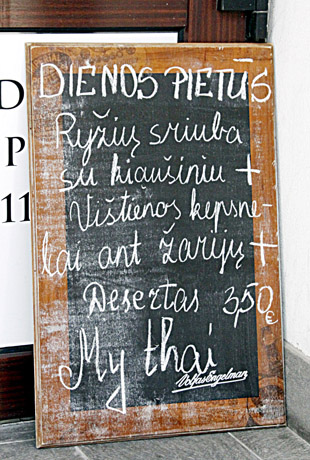 DIENOS PIETŪS
Ryžių sriuba
su kiaušiniu +
Vištienos kepsne-
liai ant žarijų +
Desertas 3,50€
My thai
Volfas Engelman
D
P
11